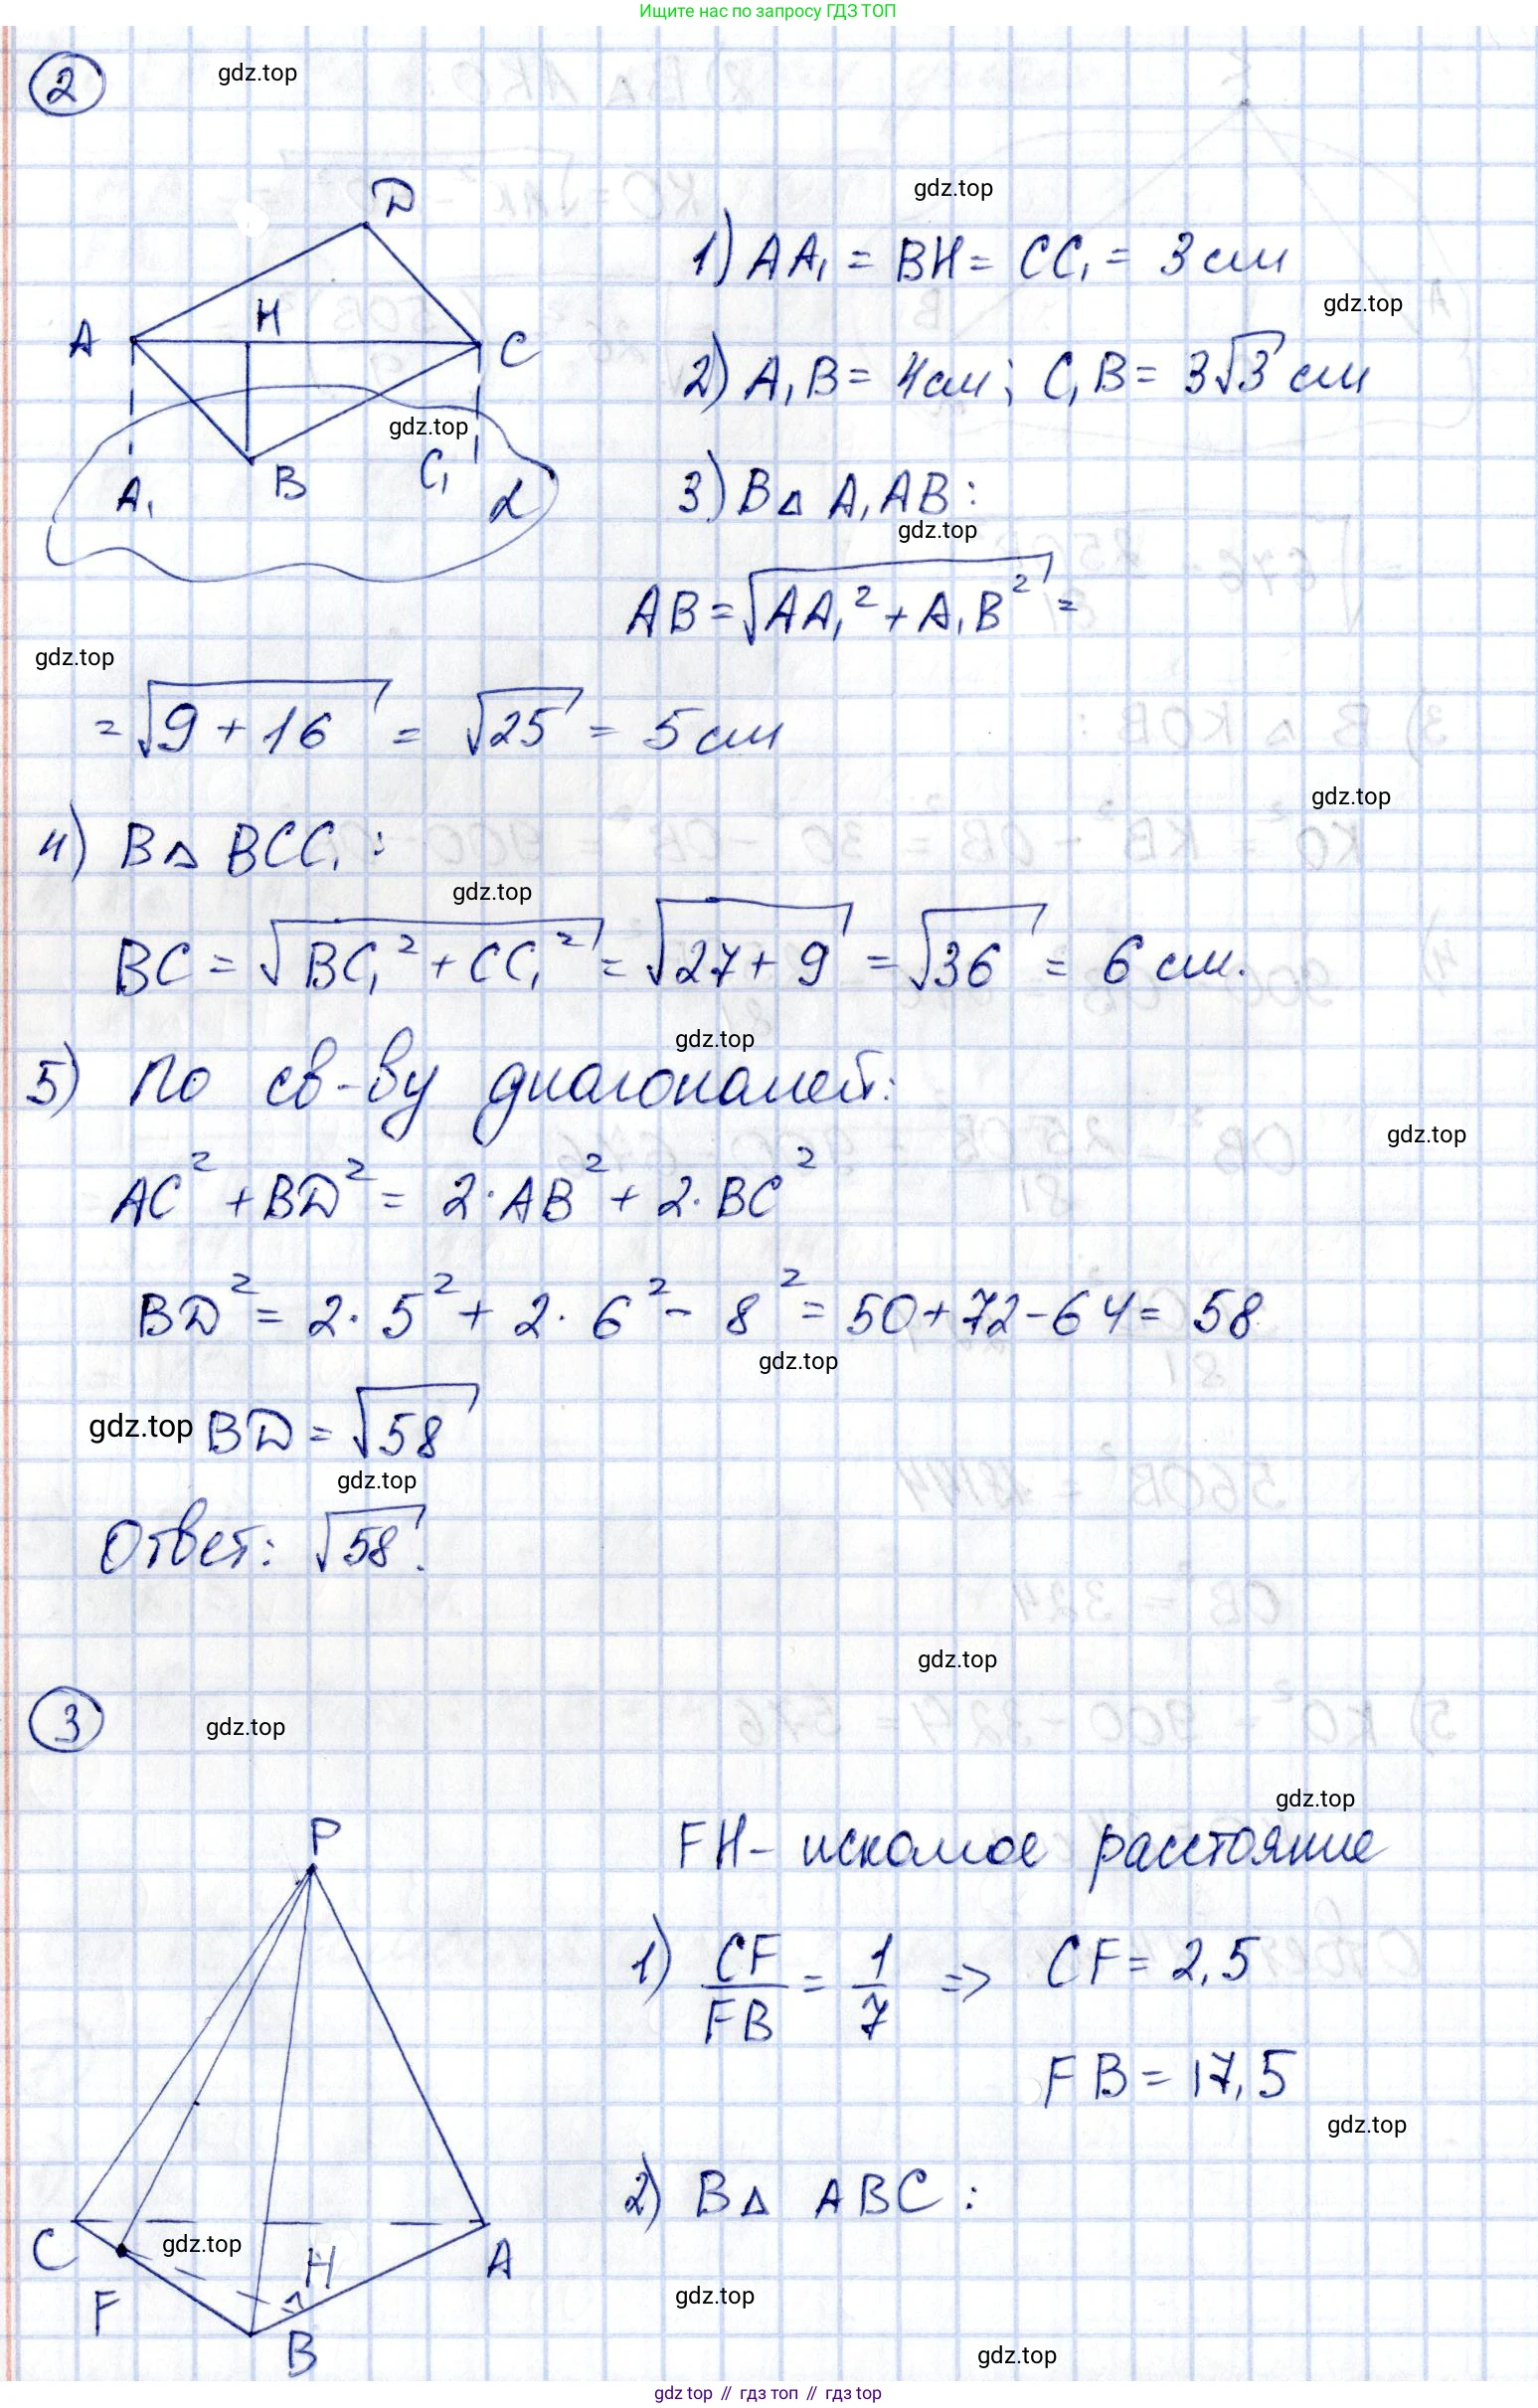 Ищите нас по запросу ГДЗ ТОП
2
gdz.top
gdz.top
D
H
A
C
A₁
B
C₁
α
gdz.top
1) AA₁ = BH = CC₁ = 3 см
gdz.top
2) A₁B = 4 см; C₁B = 3√3 см
3) В △ A₁AB:
gdz.top
AB = √(AA₁² + A₁B²) =
gdz.top
= √(9 + 16) = √25 = 5 см
gdz.top
4) В △ BCC₁:
gdz.top
BC = √(BC₁² + CC₁²) = √(27 + 9) = √36 = 6 см.
gdz.top
5) По св-ву диагоналей:
gdz.top
AC² + BD² = 2·AB² + 2·BC²
BD² = 2·5² + 2·6² - 8² = 50 + 72 - 64 = 58
gdz.top
gdz.top BD = √58
gdz.top
Ответ: √58.
gdz.top
3
gdz.top
gdz.top
P
C
F
H
A
B
gdz.top
FH - искомое расстояние
1) CF/FB = 1/7 => CF = 2,5
FB = 17,5
gdz.top
2) В △ ABC:
gdz.top
gdz.top
gdz top // гдз топ // гдз top